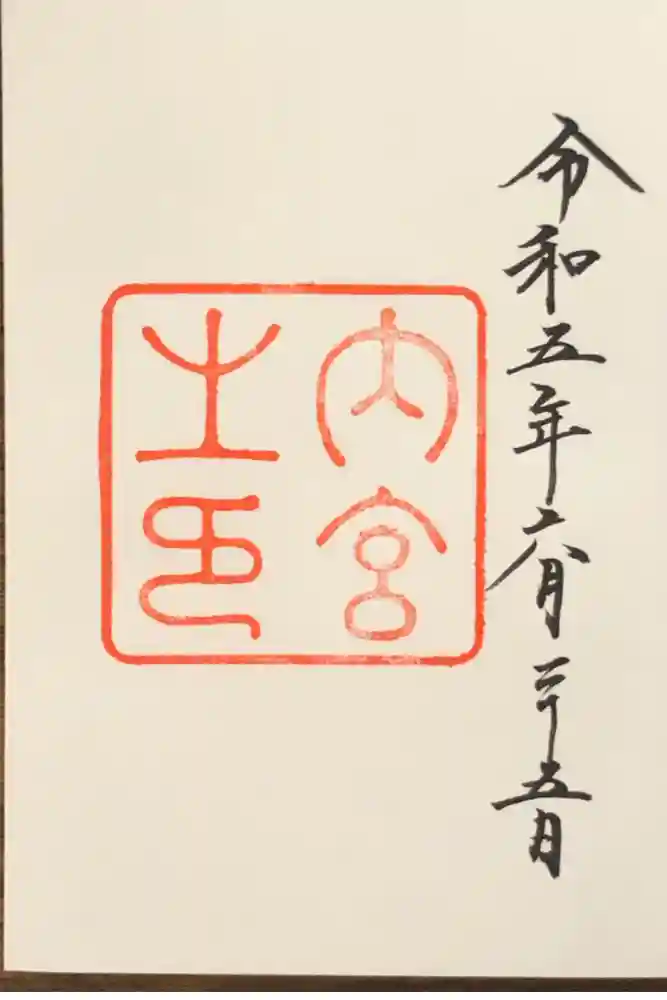 令和五年六月二十五日
内宮
之印